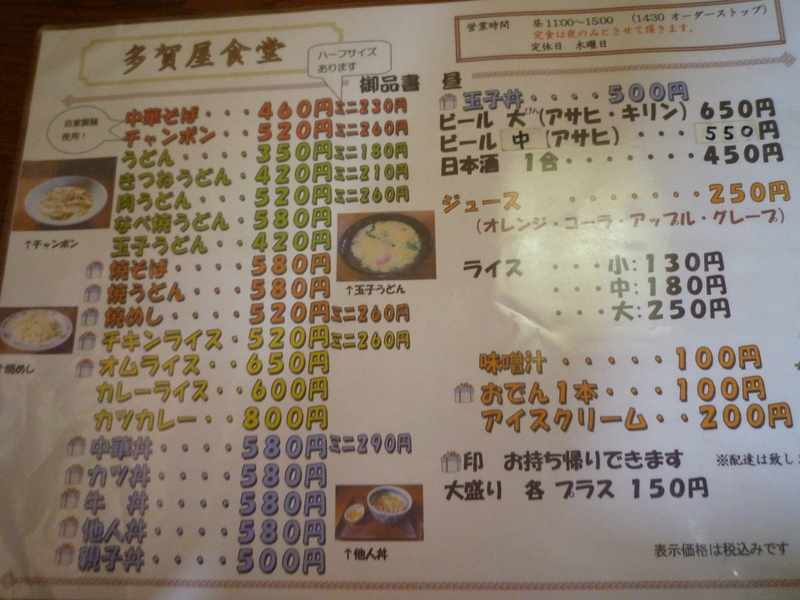 多賀屋食堂
ハーフサイズ
あります
御品書
自家製麺
使用!
中華そば・・・460円ミニ230円
チャンポン・・・520円ミニ260円
うどん・・・・350円ミニ180円
きつねうどん・420円ミニ210円
肉うどん・・・520円ミニ260円
なべ焼うどん・580円
玉子うどん・・420円
焼そば・・・・580円
焼うどん・・・580円
焼めし・・・・520円ミニ260円
チキンライス・520円ミニ260円
オムライス・・650円
カレーライス・600円
カツカレー・・800円
中華丼・・・・580円ミニ290円
カツ丼・・・・580円
牛 丼・・・・580円
他人丼・・・・580円
親子丼・・・・500円
↑チャンポン
↑玉子うどん
↑焼めし
↑他人丼
営業時間 昼11:00~15:00 (14:30 オーダーストップ)
定食は夜のみとさせて頂きます。
定休日 木曜日
昼
玉子丼・・・・500円
ビール 大びん(アサヒ・キリン) 650円
ビール 中 (アサヒ)・・・550円
日本酒 1合・・・・・・・450円
ジュース ・・・・・・・250円
(オレンジ・コーラ・アップル・グレープ)
ライス ・・・小:130円
・・・中:180円
・・・大:250円
味噌汁 ・・・・・100円
おでん1本・・・100円
アイスクリーム・・200円
印 お持ち帰りできます ※配達は致し
大盛り 各 プラス 150円
表示価格は税込みです